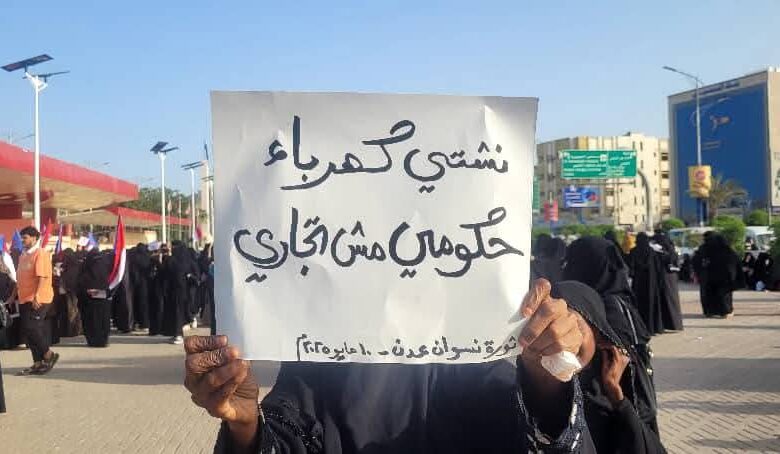 نشتي كهرباء
حكومي مش اتجاري
ثورة نسوان عدن - ١٠ مايو ٢٠٢٥م